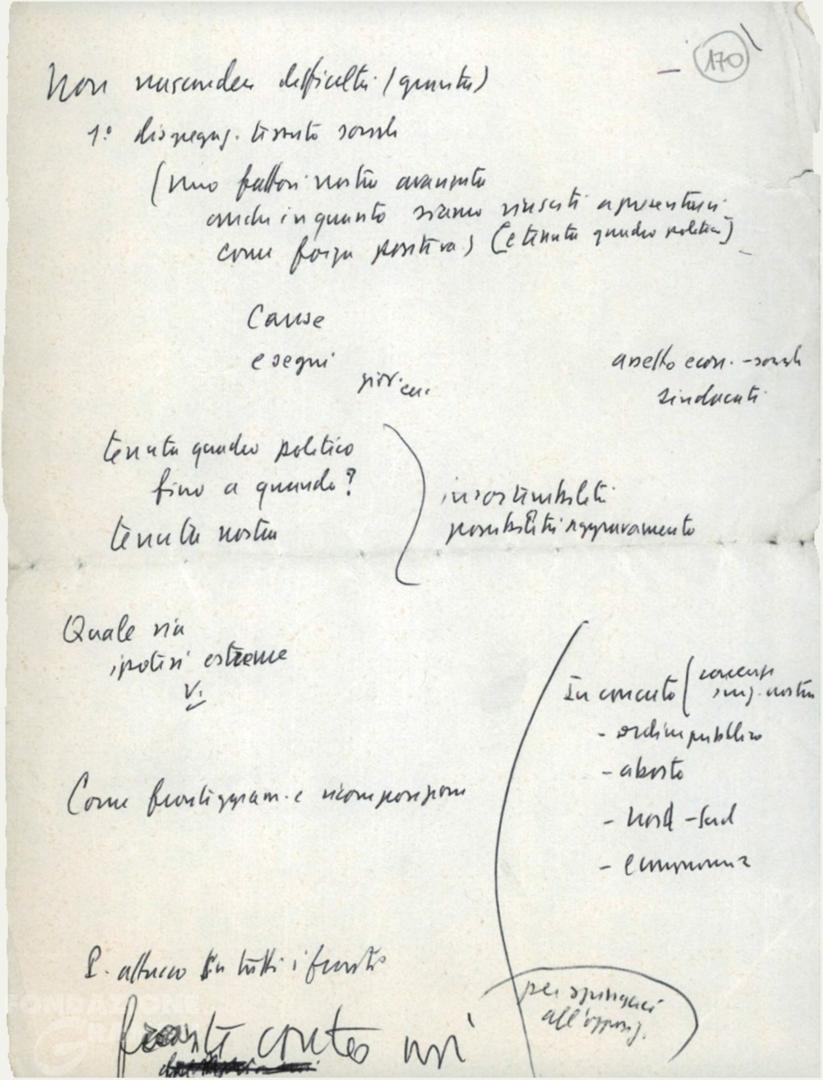 170
Non nasconder difficoltà (quanto)
1° disgregaz. tessuto sociale
(uno fattori nostra avanzata
anche in quanto siamo riusciti a presentarci
come forza positiva) (e tenuta quadro politico)
Cause
e segni
giov.
assetto econ. - sociale
sindacati
tenuta quadro politico
fino a quando?
tenuta nostra
insostenibilità
possibilità aggravamento
Quale via
ipotesi estreme
V.
In concreto (
nostra
- ordine pubblico
- aborto
- Nord - Sud
- economia
Come fronteggiam. e ricomposizione
attacco in tutti i fronti
per spingerci
all'opposiz.
contro noi